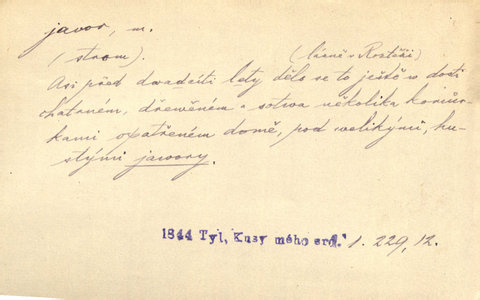 javor, m.
(strom). (básně v Rostěži)
Asi před dwadcíti lety dělo se to ještě w dosti
chatrném, dřewěném a sotwa několika komůr-
kami opatřeném domě, pod welikými, hu-
stými jawory.
1844 Tyl, Kusy mého srd. 1. 229, 12.